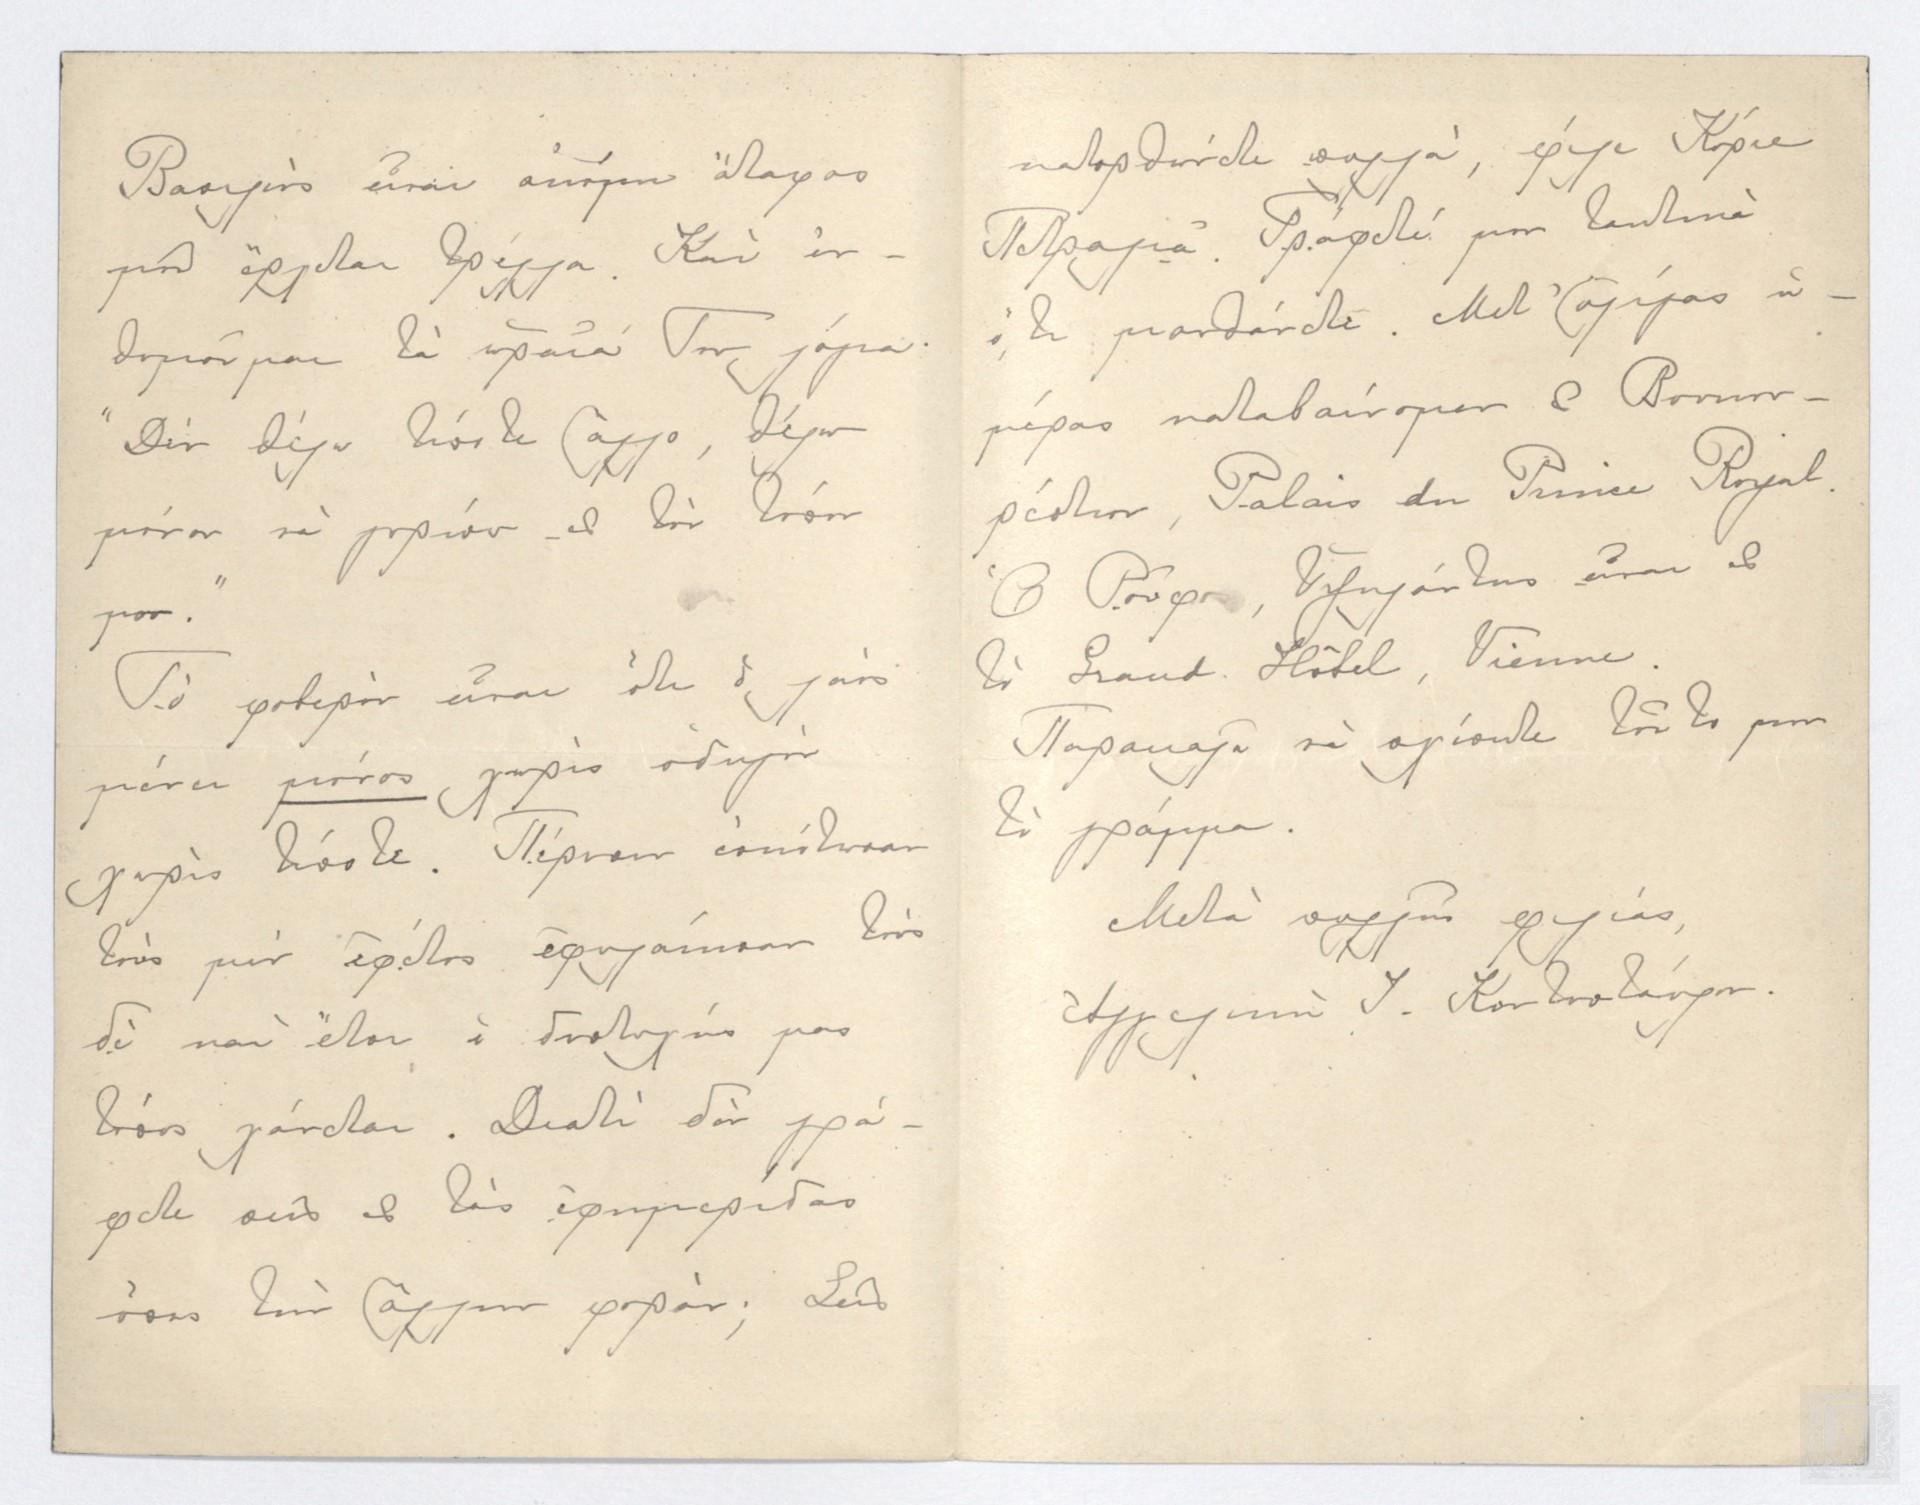 Βασιλεὺς εἶναι ἀκόμη ἄταφος
μοῦ ἔρχεται τρέλλα. Καὶ ἐν-
θυμοῦμαι τὰ ὡραῖά Του λόγια.
"Δὲν θέλω τίποτε ἄλλο, θέλω
μόνον νὰ γυρίσω εἰς τὸν τόπον
μου."
Τὸ φοβερὸν εἶναι ὅτι ὁ λαὸς
μένει μόνος χωρὶς ὁδηγὸν
χωρὶς τίποτε. Πέρυσιν ἐσκότωσαν
τοὺς μὲν ἐφέτος ἐφυλάκισαν τοὺς
δὲ καὶ ἔτσι ὁ δυστυχής μας
τόπος χάνεται. Διατί δὲν γρά-
φετε σεῖς εἰς τὰς ἐφημερίδας
ὅπως τὴν ἄλλην φοράν; Σεῖς
κατορθώνετε πολλά, φίλε Κύριε
Πετραλιᾶ. Γράφετέ μου τακτικὰ
ὅ,τι μανθάνετε. Μετ' ὀλίγας ἡ-
μέρας καταβαίνομεν εἰς Βουκου-
ρέστιον, Palais du Prince Royal.
Ὁ Ῥούφο, Ὑψηλάντης εἶναι εἰς
τὸ Grand Hôtel, Vienne.
Παρακαλῶ νὰ σχίσητε τοῦτό μου
τὸ γράμμα.
Μετὰ πολλῆς φιλίας,
Ἀγγελικὴ Ι. Κοντοσταύλου.